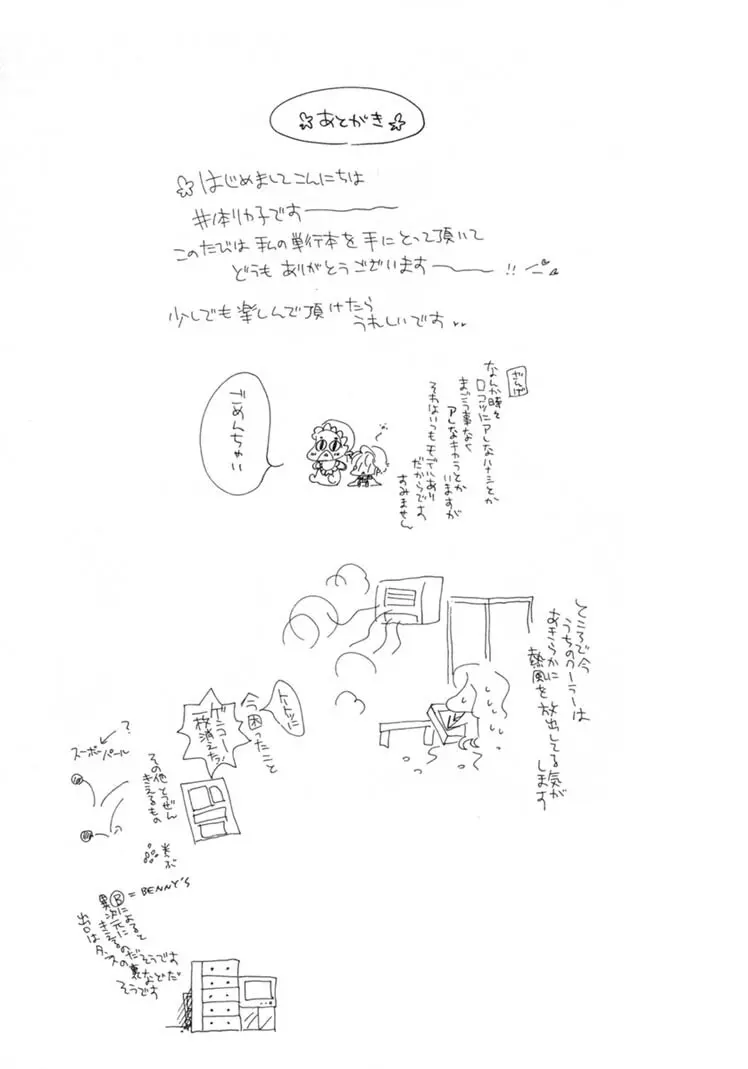 ☆あとがき☆
☆はじめましてこんにちは
井本リカ子です
このたびは私の単行本を手にとって頂いて
どうもありがとうございます !!
少しでも楽しんで頂けたら
うれしいです
ざんげ
なんか時々
ロコツにアレなハナシとか
まごう事なく
アレなキャラとか
いますが
それはいつもモデルあり
だからです
すみません
ごめんちゃい
ところで今
うちのクーラーは
あきらかに
熱風を放出してる気が
します
トートツに
今困ったこと
ゲンコー
一枚消えた!
その他とつぜん
きえるもの
?
スーパーボール
米ぶ
Ⓑ = BENNY'S
によると
異次元に
きえるのだそうです
出口は
タンスの裏などだ
そうです